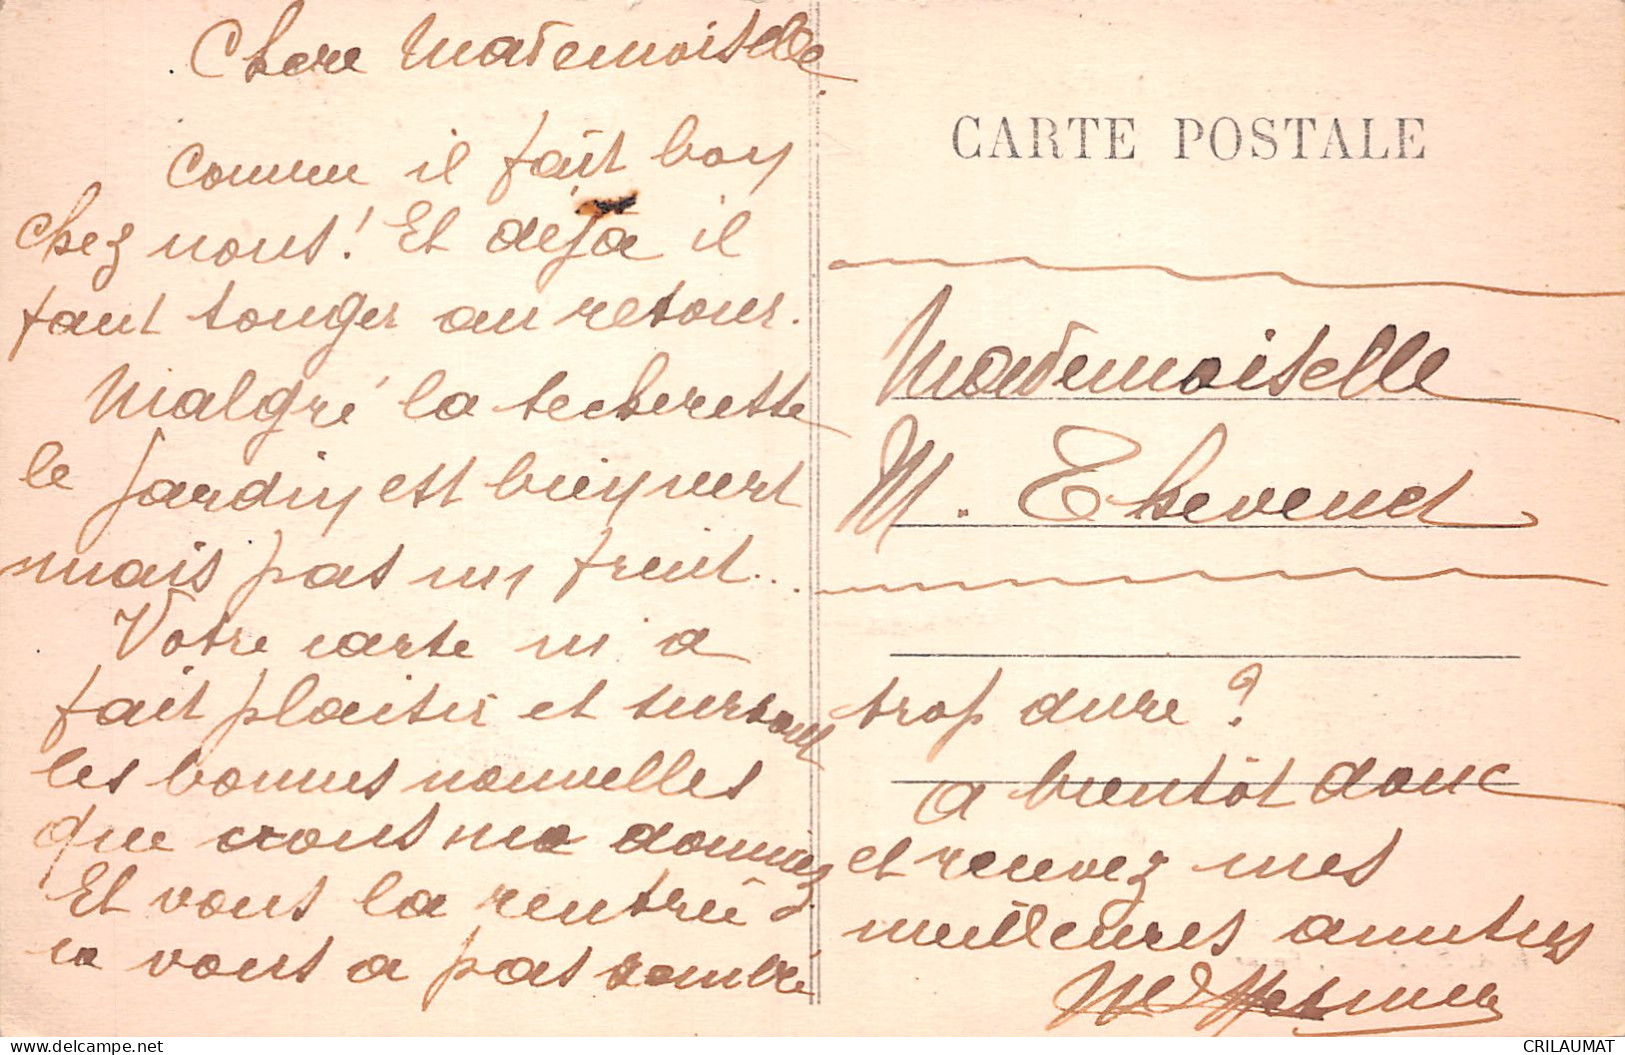 Chere Mademoiselle
comme il fait bon
chez nous! Et déjà il
faut songer au retour.
Malgré la secheresse
le jardin est bien vert
mais pas un fruit..
Votre carte m'a
fait plaisir et surtout
les bonnes nouvelles
que vous me donniez
Et vous la rentrée
ca vous a pas semblé
CARTE POSTALE
Mademoiselle
M. Thevend
trop dure?
a bientôt donc
et recevez mes
meilleures amities
CRILAUMAT